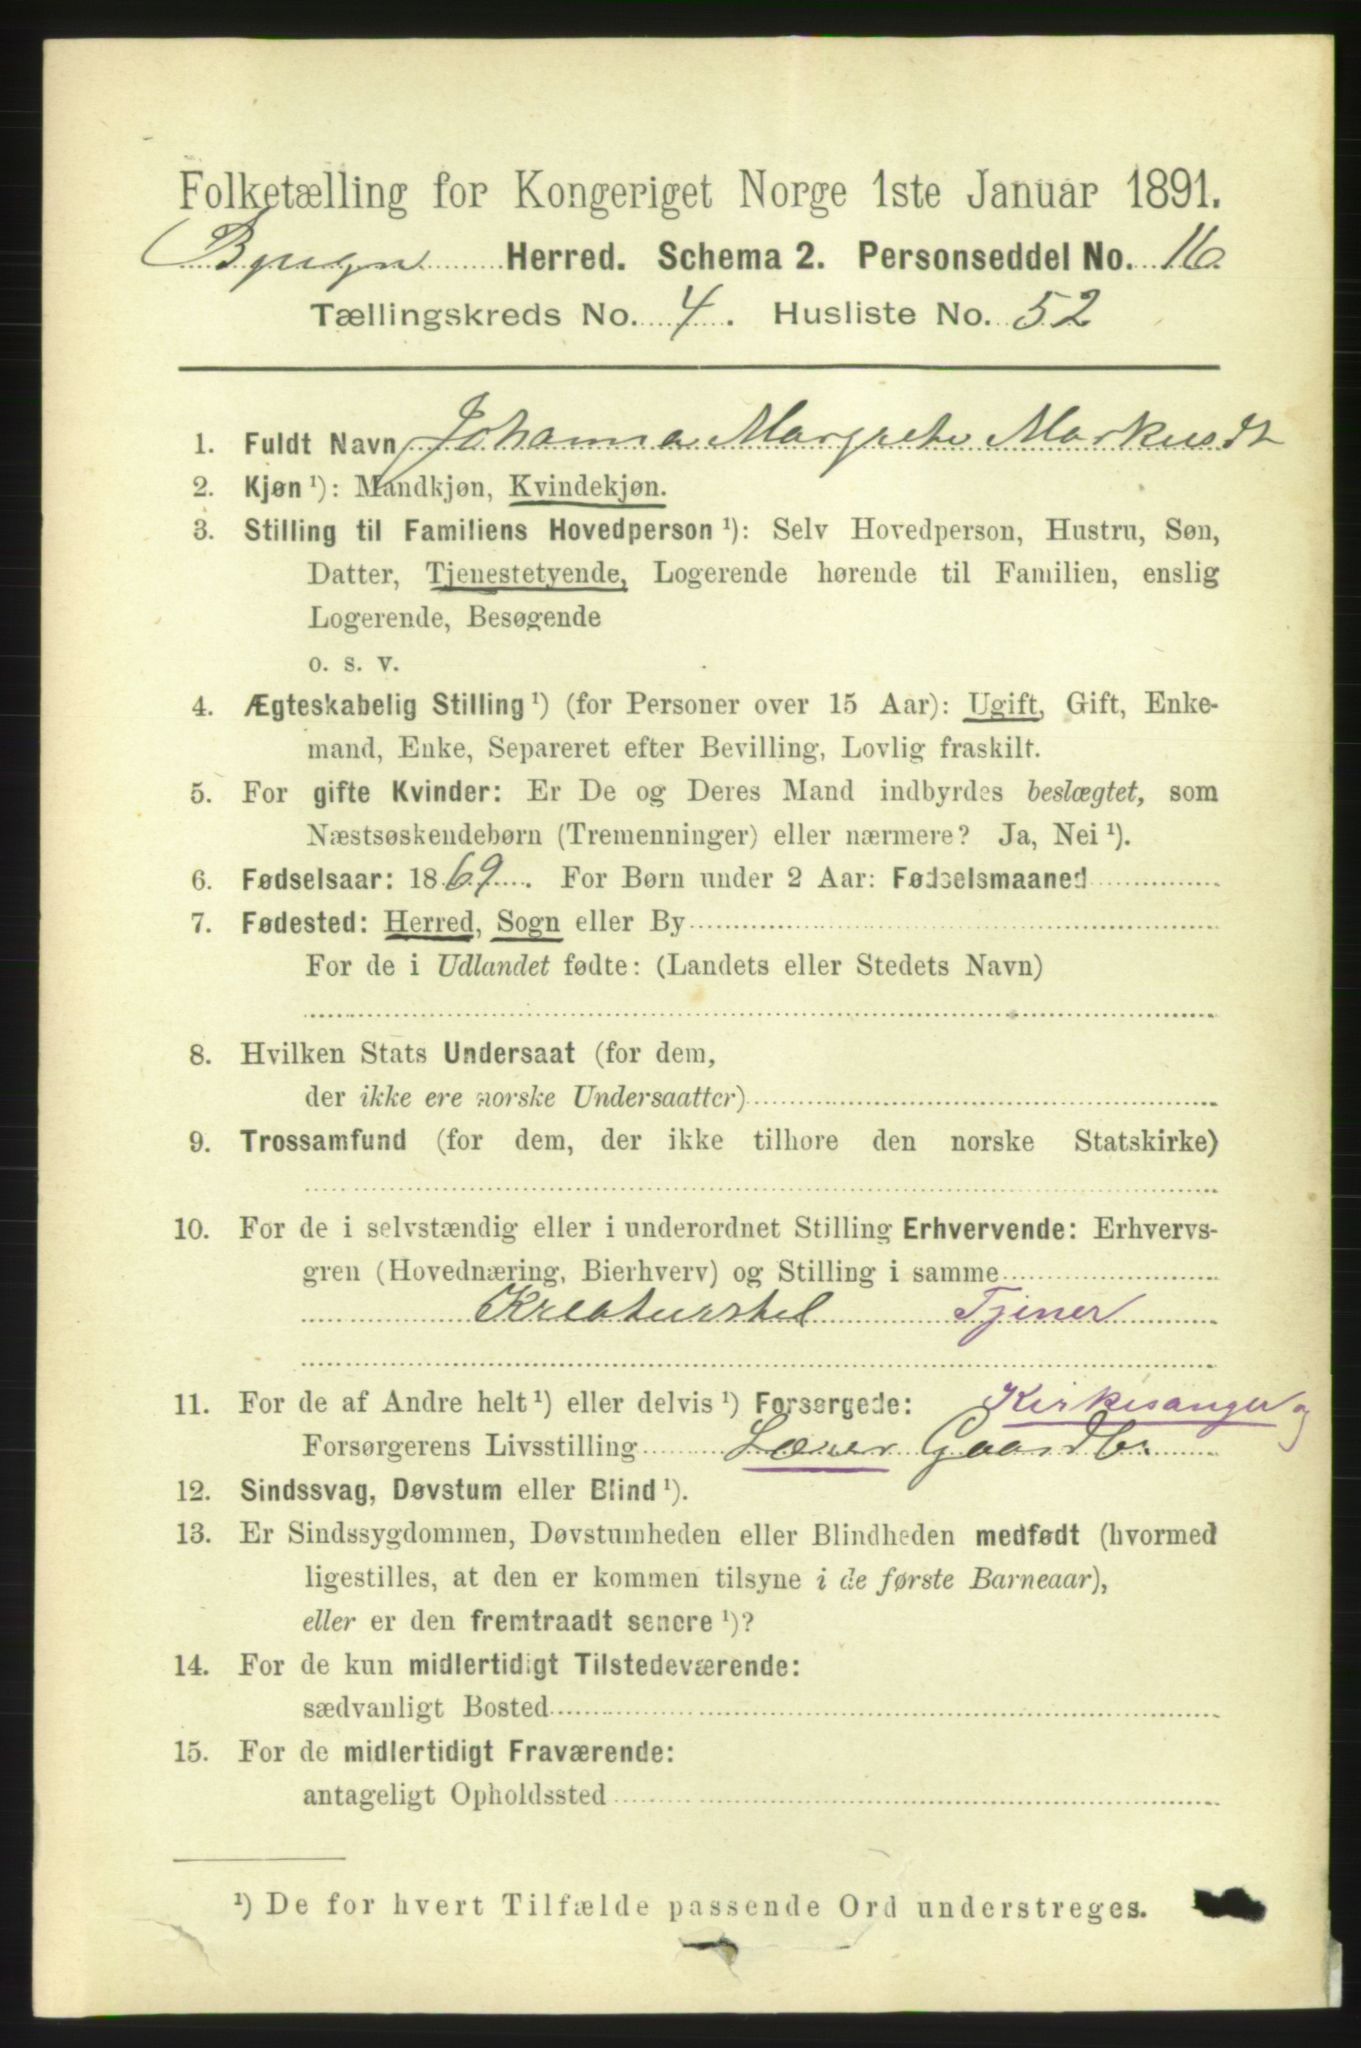 Folketælling for Kongeriget Norge 1ste Januar 1891.
Bjugn Herred. Schema 2. Personseddel No. 16.
Tællingskreds No. 4. Husliste No. 52
1. Fuldt Navn Johanna Margrete Markusdt
2. Kjøn ¹): Mandkjøn, Kvindekjøn.
3. Stilling til Familiens Hovedperson ¹): Selv Hovedperson, Hustru, Søn,
Datter, Tjenestetyende, Logerende hørende til Familien, enslig
Logerende, Besøgende
o. s. v.
4. Ægteskabelig Stilling ¹) (for Personer over 15 Aar): Ugift, Gift, Enke-
mand, Enke, Separeret efter Bevilling, Lovlig fraskilt.
5. For gifte Kvinder: Er De og Deres Mand indbyrdes beslægtet, som
Næstsøskendebørn (Tremenninger) eller nærmere? Ja, Nei ¹).
6. Fødselsaar: 1869. For Børn under 2 Aar: Fødselsmaaned
7. Fødested: Herred, Sogn eller By
For de i Udlandet fødte: (Landets eller Stedets Navn)
8. Hvilken Stats Undersaat (for dem,
der ikke ere norske Undersaatter)
9. Trossamfund (for dem, der ikke tilhøre den norske Statskirke)
10. For de i selvstændig eller i underordnet Stilling Erhvervende: Erhvervs-
gren (Hovednæring, Bierhverv) og Stilling i samme
Kreaturstel Tjener
11. For de af Andre helt ¹) eller delvis ¹) Forsørgede: Kirkesanger og
Forsørgerens Livsstilling Lærer Gaardbr
12. Sindssvag, Døvstum eller Blind ¹).
13. Er Sindssygdommen, Døvstumheden eller Blindheden medfødt (hvormed
ligestilles, at den er kommen tilsyne i de første Barneaar),
eller er den fremtraadt senere ¹)?
14. For de kun midlertidigt Tilstedeværende:
sædvanligt Bosted
15. For de midlertidigt Fraværende:
antageligt Opholdssted
¹) De for hvert Tilfælde passende Ord understreges.